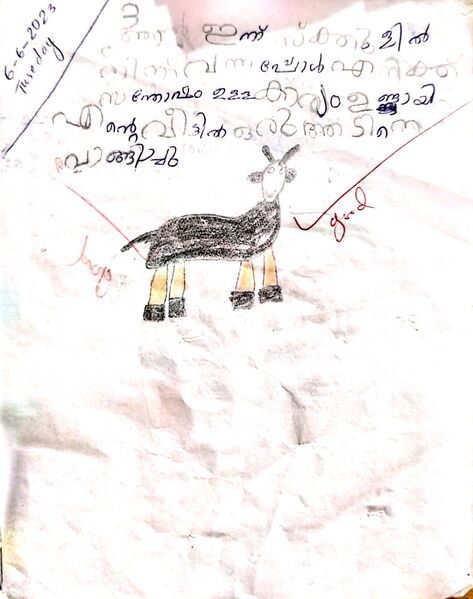 6-6-2023
Tuseday
3
ഞാൻ ഇന്ന് സ്ക്കുളിൽ
നിന്ന് വന്നപ്പോൾ എനിക്ക്
സന്തോഷം ഉള്ള കാര്യം ഉണ്ടായി
എൻ്റെ വീട്ടിൽ ഒരു ആടിനെ
വാങ്ങിച്ചു
good